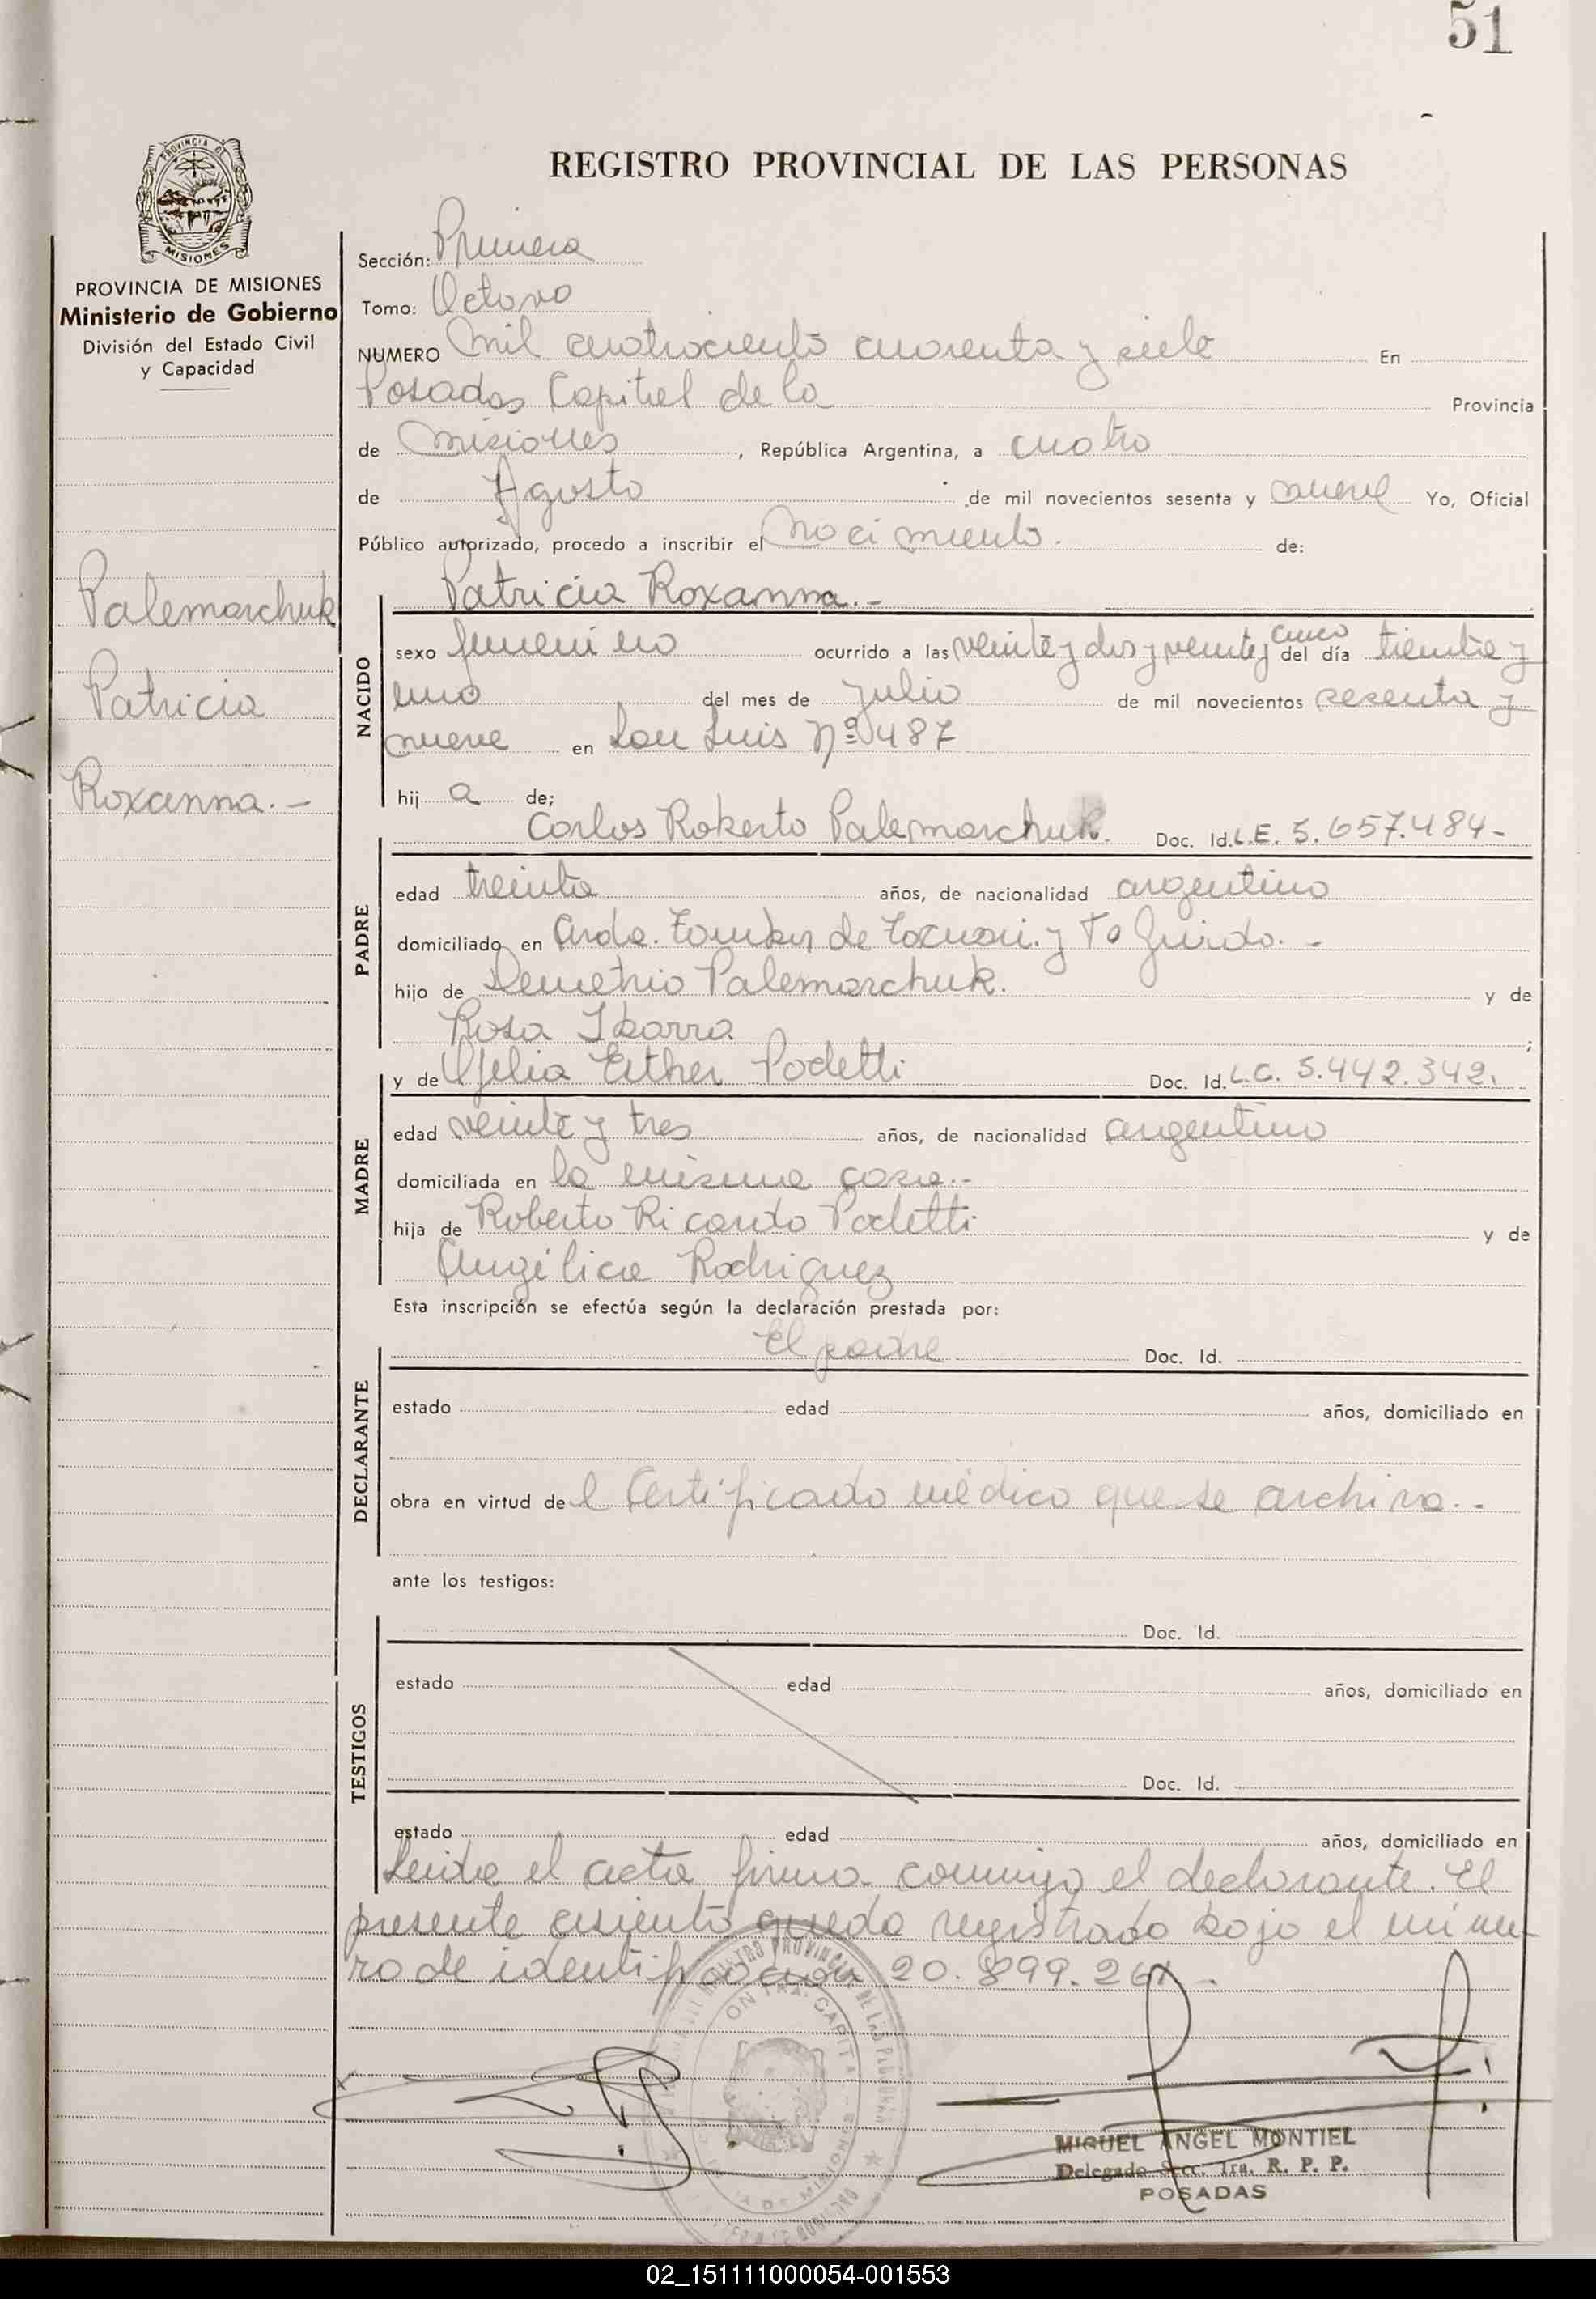 51
REGISTRO PROVINCIAL DE LAS PERSONAS
PROVINCIA DE MISIONES
Ministerio de Gobierno
División del Estado Civil
y Capacidad
Palemarchuk
Patricia
Roxanna.-
Sección: Primera
Tomo: Octavo
NUMERO Mil cuatrociento cuarenta y siete En
Posadas Capital de la Provincia
de Misiones, República Argentina, a cuatro
de Agosto de mil novecientos sesenta y nueve Yo, Oficial
Público autorizado, procedo a inscribir el nacimiento. de:
NACIDO
Patricia Roxanna.-
sexo femenino ocurrido a las veinte y dos y veinte y cinco del día treinta y
uno del mes de julio de mil novecientos sesenta y
nueve en San Luis Nº 487
hij a de;
PADRE
Carlos Roberto Palemarchuk. Doc. Id. L.E. 5.657.484-
edad treinta años, de nacionalidad argentino
domiciliado en Avda. de Tacuari y
hijo de Demetrio Palemarchuk. y de
Rosa Ibarra ;
MADRE
y de Ofelia Esther Podetti Doc. Id. L.C. 5.442.342.
edad veinte y tres años, de nacionalidad argentina
domiciliada en la misma casa.-
hija de Roberto Ricardo Podetti y de
Angélica Rodriguez
Esta inscripción se efectúa según la declaración prestada por:
DECLARANTE
El padre Doc. Id.
estado edad años, domiciliado en
obra en virtud de l Certificado médico que se archiva.-
ante los testigos:
TESTIGOS
Doc. Id.
estado edad años, domiciliado en
Doc. Id.
estado edad años, domiciliado en
Leida el acta firma conmigo el declarante. El
presente asiento queda registrado bajo el núme-
ro de identificación 20.899.261.-
MIGUEL ANGEL MONTIEL
Delegado Secc. 1ra. R. P. P.
POSADAS
02_151111000054-001553